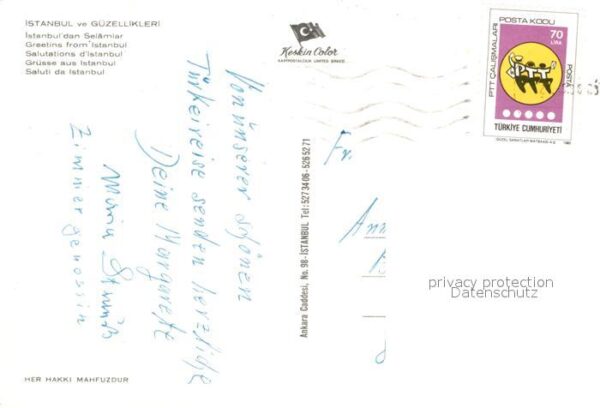 İSTANBUL ve GÜZELLİKLERİ
İstanbul'dan Selâmlar
Greetins from İstanbul
Salutations d'istanbul
Grüsse aus Istanbul
Saluti da Istanbul
Keskin Color
KARTPOSTALCILIK LIMITED ŞİRKETİ
POSTA KODU
70
LİRA
PTT ÇALIŞMALARI
PTT
POSTA
TÜRKİYE CUMHURİYETİ
Von unserer schönen
Türkeireise senden herzliche
Deine Margarete
Maria
Zimmergenossin
Ankara Caddesi, No. 98-İSTANBUL Tel: 527 34 06 - 526 52 71
Fr.
privacy protection
Datenschutz
HER HAKKI MAHFUZDUR